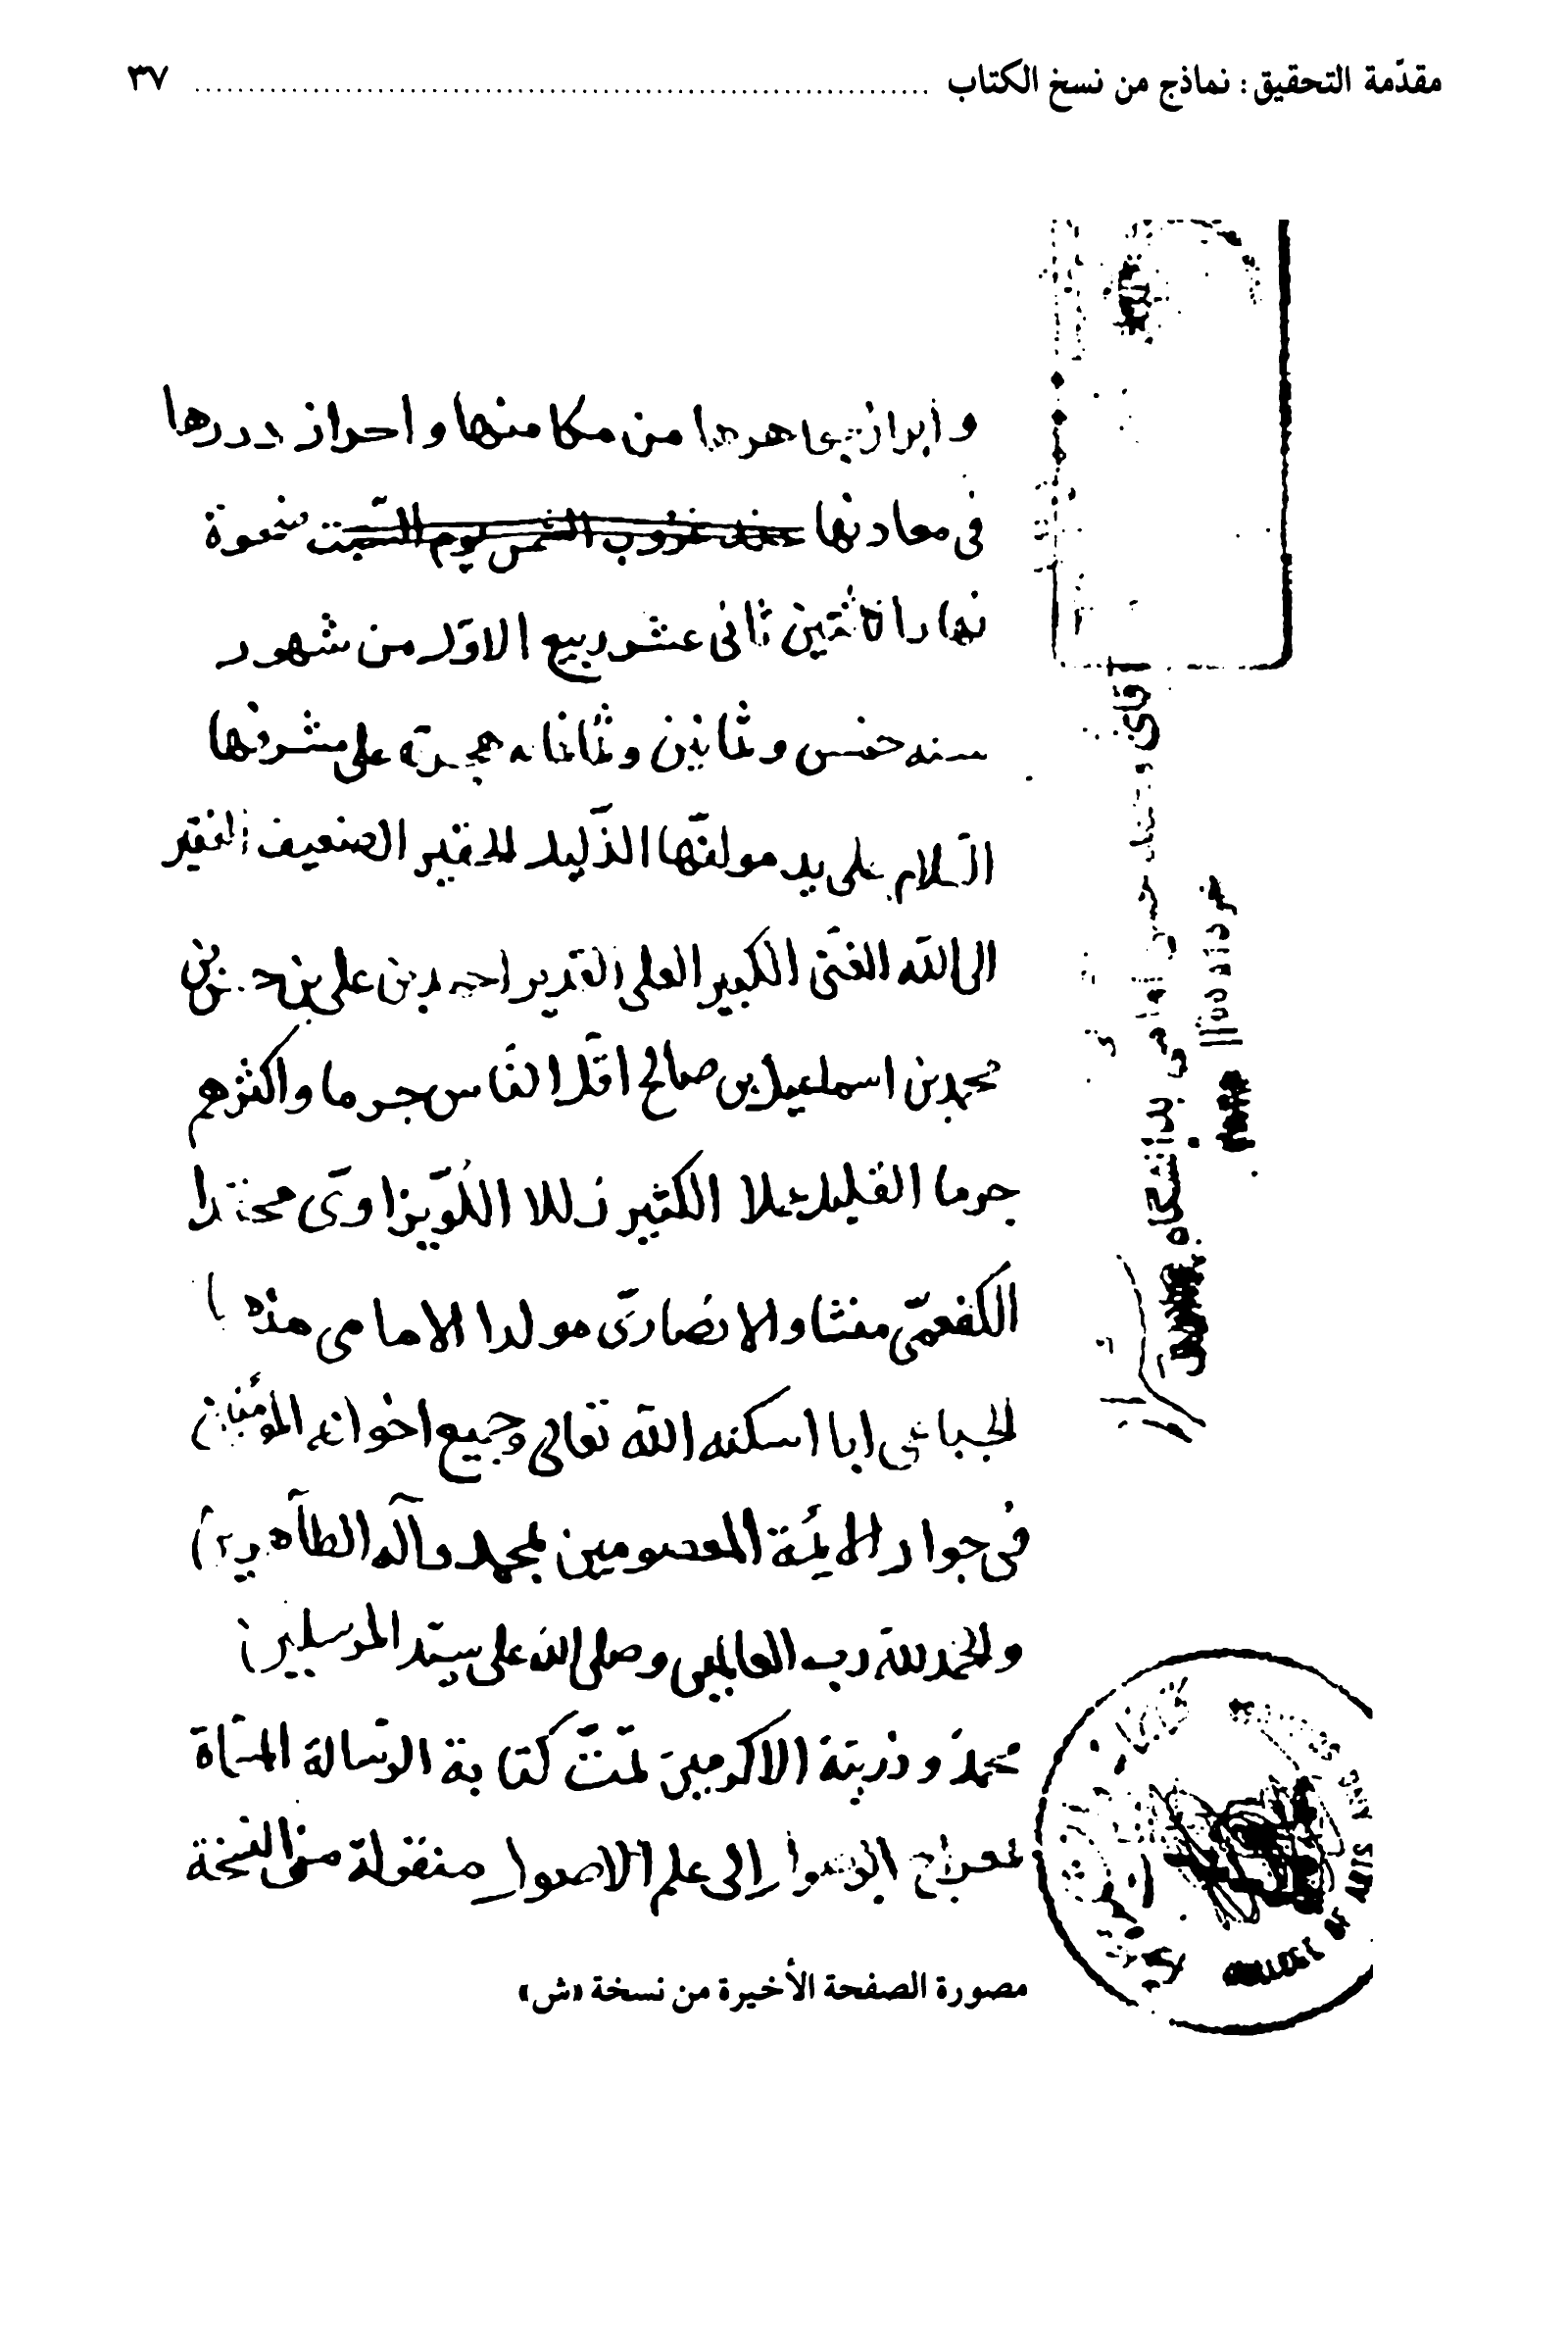 مقدّمة التحقيق: نماذج من نسخ الكتاب ........ ٣٧
و ابراز جواهرها من مكامنها و احراز دررها
فى معادنها عند غروب الشمس يوم السّبت ضحوة
نهار الاثنين ثانى عشر ربيع الاوّل من شهور
سنه خمس و ثمانين و ثمانمائه هجريّة على مشرفها
السّلام على يد مولفّها الذّليل الحقير الضعيف الفقير
الى اللّه الغنّى الكبير العلى القدير احمد بن على بن حسن بن
محمد بن اسماعيل بن صالح اقلّ النّاس جرما و اكثرهم
جرما القليل عملا الكثير زللا اللّويزاوىّ محتدا
الكفعمىّ منشا و الانصارىّ مولدا الامامى مذهبا
الجباعى ابا اسكنه اللّه تعالى و جميع اخوانه المؤمنين
فى جوار الايمّة المعصومين بمحمد و آله الطاهرين
و الحمد للّه رب العالمين و صلى اللّه على سيّد المرسلين
محمّد و ذريّته الاكرمين تمّت كتابة الرّسالة المسمّاة
بمعراج إلى علم منقولة من النسخة
آقاى
امامى بدانشگاه
خرداد
مصورة الصفحة الأخيرة من نسخة «ش»